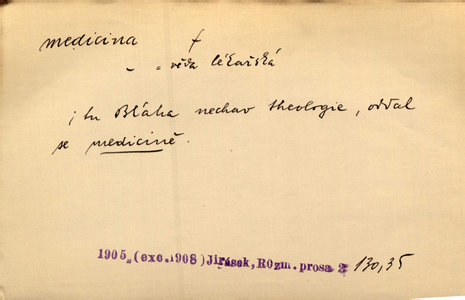 medicina f
- „ věda lékařská
; tu Bláha nechav theologie, oddal
se medicině.
1905 (exc.1908) Jirásek, Rozm. prosa 2 130,35